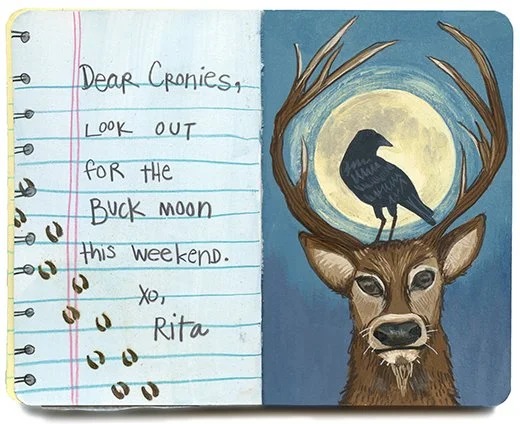 Dear Cronies,
Look out
for the
Buck moon
this weekend.
xo,
Rita